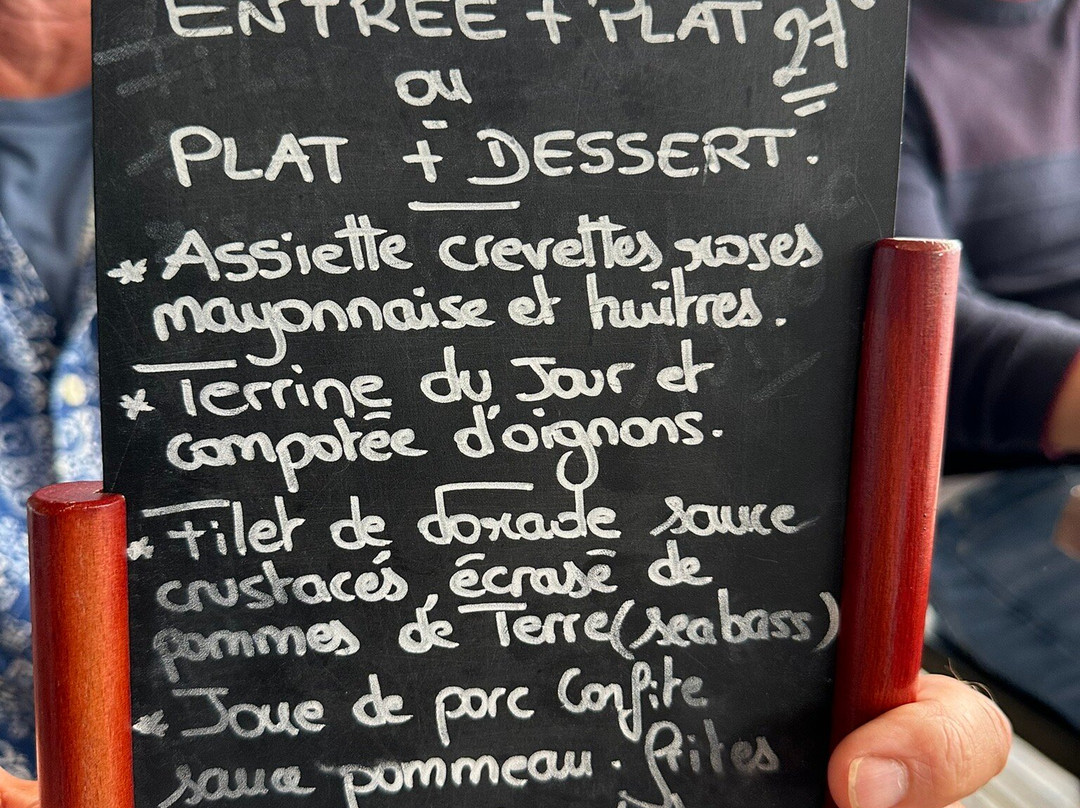 ENTRÉE + PLAT 27€
ou
PLAT + DESSERT.
* Assiette crevettes roses
mayonnaise et huîtres.
* Terrine du Jour et
compotée d'oignons.
* Filet de dorade sauce
crustacés, écrasé de
pommes de Terre (seabass)
* Joue de porc Confite
sauce pommeau. Frites